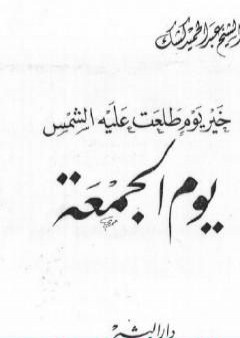 الشيخ عبد الحميد كشك
خَيْر يَوْم طَلعَت عَلَيْه الشمْس
يوم الجمْعَة